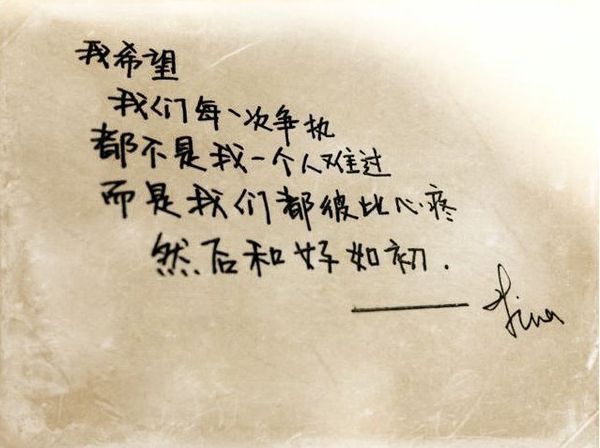 我希望
我们每一次争执
都不是我一个人难过
而是我们都彼比心疼
然后和好如初.